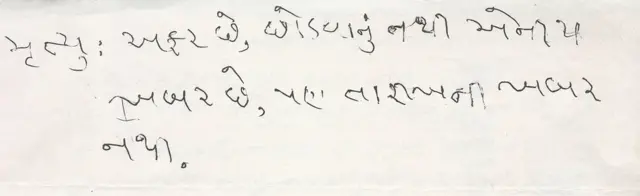 મૃત્યુ: અફર છે, છોડવાનું નથી એનાય
ખબર છે, પણ તારીખના ખબર
નથી.